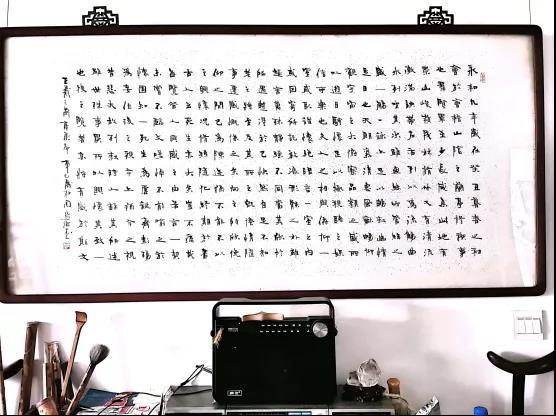 永和九年歲在癸丑暮春之初
會於會稽山陰之蘭亭脩禊事
也群賢畢至少長咸集此地有
崇山峻嶺茂林脩竹又有清流
激湍映帶左右引以為流觴曲
水列坐其次雖無絲竹管絃之
盛一觴一詠亦足以暢敘幽情
是日也天朗氣清惠風和暢仰
觀宇宙之大俯察品類之盛所
以遊目騁懷足以極視聽之娛
信可樂也夫人之相與俯仰一
世或取諸懷抱悟言一室之內
或因寄所託放浪形骸之外雖
趣舍萬殊靜躁不同當其欣於
所遇暫得於己快然自足不知
老之將至及其所之既倦情隨
事遷感慨係之矣向之所欣俛
仰之間已為陳跡猶不能不以
之興懷況脩短隨化終期於盡
古人云死生亦大矣豈不痛哉
每覽昔人興感之由若合一契
未嘗不臨文嗟悼不能喻之於
懷固知一死生為虛誕齊彭殤
為妄作後之視今亦由今之視
昔悲夫故列敘時人錄其所述
雖世殊事異所以興懷其致一
也後之覽者亦將有感於斯文
王羲之蘭亭集序